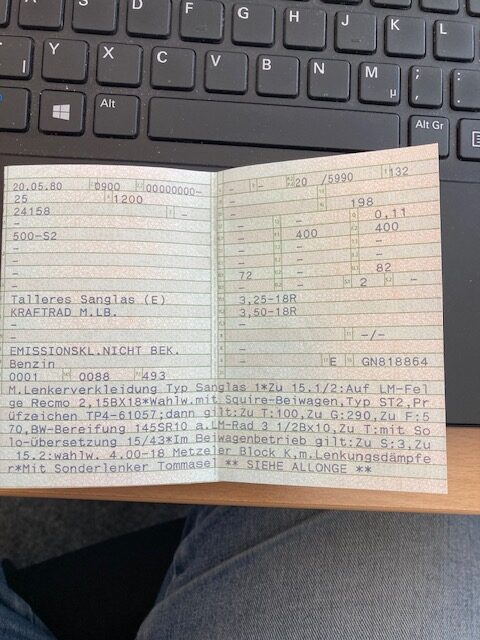 S D F G H J K L
Y X C V B N M µ , ; . :
Alt Alt Gr
20.05.80 0900 00000000-
25 1200
24158 -
-
500-S2
-
-
-
Talleres Sanglas (E)
KRAFTRAD M.LB.
-
-
EMISSIONSKL.NICHT BEK.
Benzin
0001 0088 493
- - 20 /5990 132
-
198
- - 0,11
- 400 400
- - -
- - 82
72 - 2 -
-
3,25-18R
3,50-18R
-
- -/-
-
- E GN818864
M.Lenkerverkleidung Typ Sanglas 1*Zu 15.1/2:Auf LM-Fel
ge Recmo 2,15BX18*Wahlw.mit Squire-Beiwagen,Typ ST2,Pr
üfzeichen TP4-61057;dann gilt:Zu T:100,Zu G:290,Zu F:5
70,BW-Bereifung 145SR10 a.LM-Rad 3 1/2Bx10,Zu T:mit So
lo-Übersetzung 15/43*Im Beiwagenbetrieb gilt:Zu S:3,Zu
15.2:wahlw. 4.00-18 Metzeler Block K,m.Lenkungsdämpfe
r*Mit Sonderlenker Tommasel ** SIEHE ALLONGE **